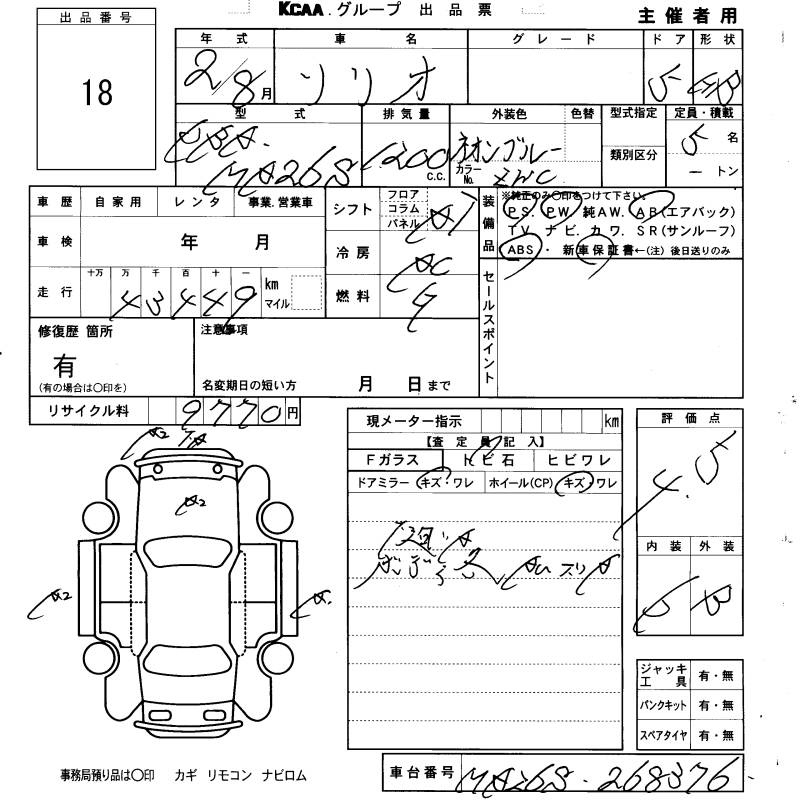 KCAA.グループ 出品票
主催者用
出品番号
18
年式 車名 グレード ドア 形状
2/8月 ソリオ 5 HB
型式 排気量 外装色 色替 型式指定 定員・積載
類別区分
MA26S 1200 C.C. ネオンブルー カラーNo. ZWC 5名
ートン
車歴 自家用 レンタ 事業.営業車
車検 年 月
走行 十万 万 千 百 十 一 km マイル
43449
シフト フロア コラム パネル AT
冷房 AC
燃料 G
装備品
※純正のみ〇印をつけて下さい。
PS. PW. 純AW. AB(エアバック)
TV. ナビ. カワ. SR(サンルーフ)
ABS ・ 新車保証書←(注) 後日送りのみ
セールスポイント
修復歴 箇所
有
(有の場合は〇印を)
注意事項
名変期日の短い方 月 日まで
リサイクル料 9770円
現メーター指示 km
【査定員記入】
Fガラス トビ石 ヒビワレ
ドアミラー キズ・ワレ ホイール(CP) キズ・ワレ
評価点
4.5
内装 外装
B
A2
A2
A2
スリA
ジャッキ工具 有・無
パンクキット 有・無
スペアタイヤ 有・無
事務局預り品は〇印 カギ リモコン ナビロム
車台番号 MA26S-268376